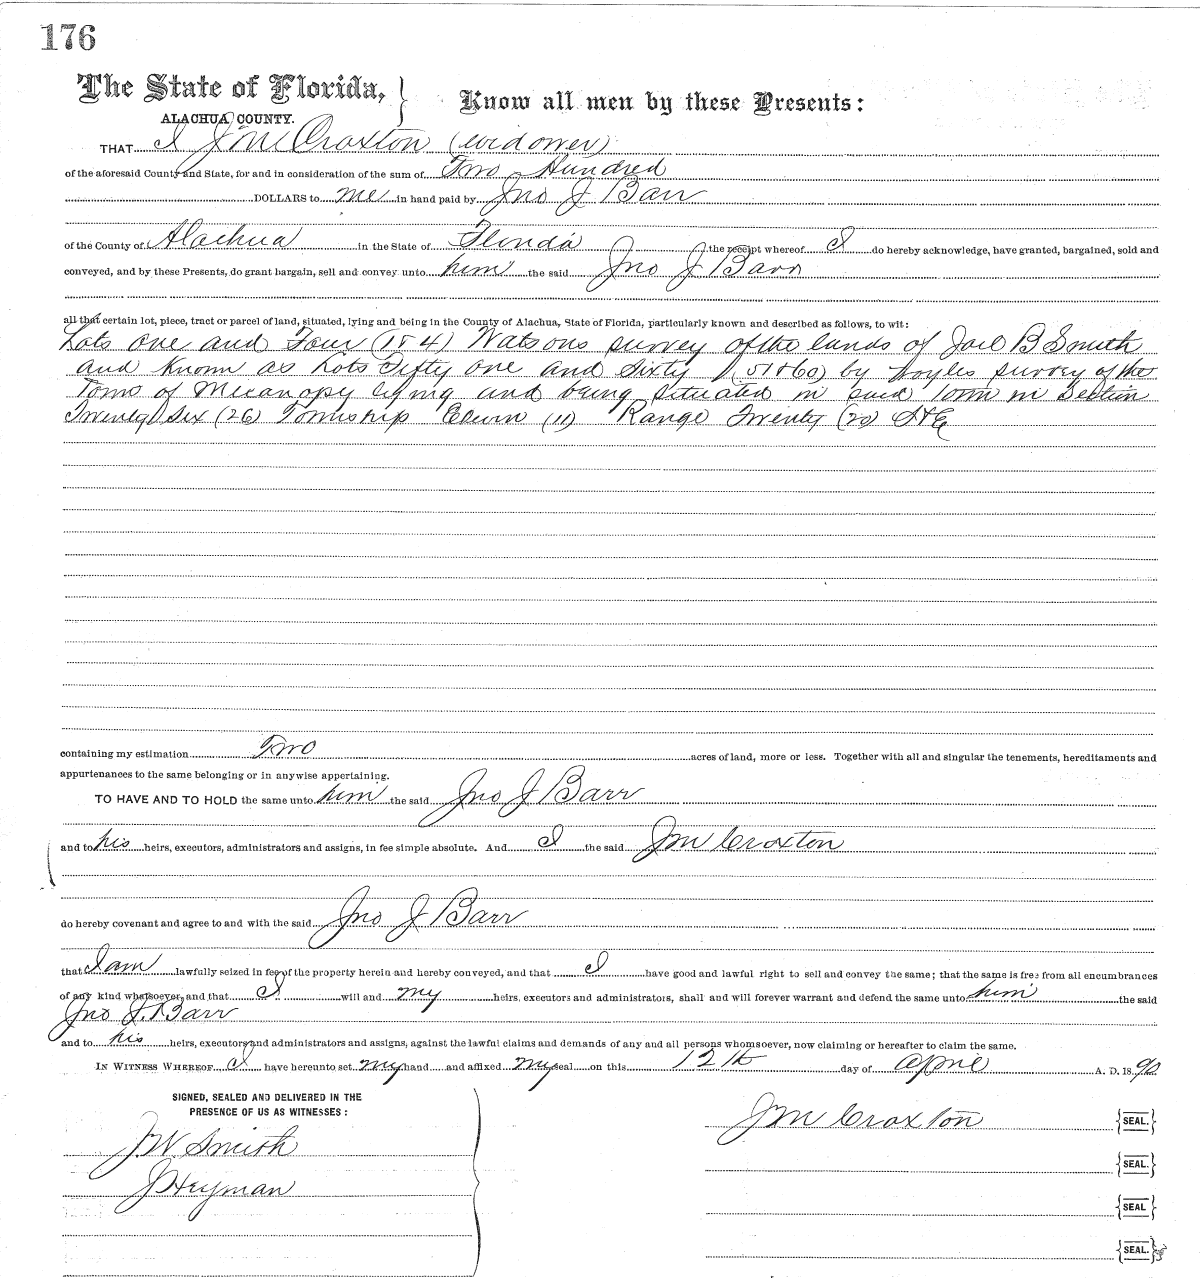 176
The State of Florida, } Know all men by these Presents:
ALACHUA COUNTY.
THAT I J M Croxton (widower)
of the aforesaid County and State, for and in consideration of the sum of Two Hundred
DOLLARS to me in hand paid by Jno J Barr
of the County of Alachua in the State of Florida the receipt whereof I do hereby acknowledge, have granted, bargained, sold and
conveyed, and by these Presents, do grant bargain, sell and convey unto him the said Jno J Barr
all that certain lot, piece, tract or parcel of land, situated, lying and being in the County of Alachua, State of Florida, particularly known and described as follows, to wit:
Lots One and Four (1 & 4) Watsons survey of the lands of B Smith
and Known as Lots Fifty one and Sixty (51 & 60) by survey of the
Town of Micanopy lying and being situated in said Town in Section
Twenty Six (26) Township Eleven (11) Range Twenty (20)
containing my estimation Two acres of land, more or less. Together with all and singular the tenements, hereditaments and
appurtenances to the same belonging or in anywise appertaining.
TO HAVE AND TO HOLD the same unto him the said Jno J Barr
and to his heirs, executors, administrators and assigns, in fee simple absolute. And I the said J M Croxton
do hereby covenant and agree to and with the said Jno J Barr
that I am lawfully seized in fee of the property herein and hereby conveyed, and that I have good and lawful right to sell and convey the same; that the same is free from all encumbrances
of any kind whatsoever, and that I will and my heirs, executors and administrators, shall and will forever warrant and defend the same unto him the said
Jno J. Barr
and to his heirs, executors and administrators and assigns, against the lawful claims and demands of any and all persons whomsoever, now claiming or hereafter to claim the same.
IN WITNESS WHEREOF I have hereunto set my hand and affixed my seal on this 12th day of April A. D. 1890
SIGNED, SEALED AND DELIVERED IN THE
PRESENCE OF US AS WITNESSES:
J M Croxton {SEAL.}
J W Smith
{SEAL.}
J Heyman
{SEAL}
{SEAL.}